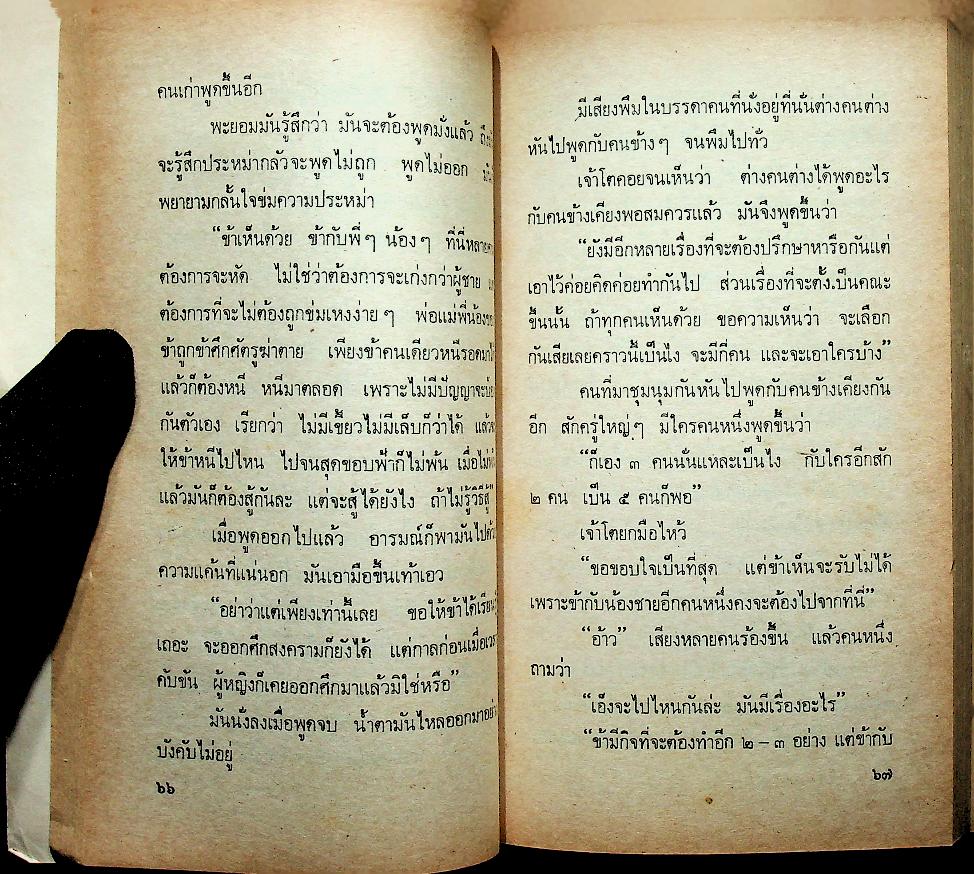 คนเก่าพูดขึ้นอีก
พะยอมมันรู้สึกว่า มันจะต้องพูดมั่งแล้ว
จะรู้สึกประหม่ากลัวจะพูดไม่ถูก พูดไม่ออก
พยายามกลั้นใจข่มความประหม่า
“ข้าเห็นด้วย ข้ากับพี่ๆ น้องๆ ที่นี่
ต้องการจะหัด ไม่ใช่ว่าต้องการจะเก่งกว่าผู้ชาย
ต้องการที่จะไม่ต้องถูกข่มเหงง่ายๆ พ่อแม่พี่น้อง
ข้าถูกข้าศึกศัตรูฆ่าตาย เพียงข้าคนเดียวหนีรอดมา
แล้วก็ต้องหนี หนีมาตลอด เพราะไม่มีปัญญาจะ
กันตัวเอง เรียกว่า ไม่มีเขี้ยวไม่มีเล็บก็ว่าได้
ให้ข้าหนีไปไหน ไปจนสุดขอบฟ้าก็ไม่พ้น
แล้วมันก็ต้องสู้กันละ แต่จะสู้ได้ยังไง ถ้าไม่รู้วิธีสู้”
เมื่อพูดออกไปแล้ว อารมณ์ก็พามันไป
ความแค้นที่แน่นอก มันเอามือขึ้นเท้าเอว
“อย่าว่าแต่เพียงเท่านี้เลย ขอให้ข้าได้
เถอะ จะออกศึกสงครามก็ยังได้ แต่กาลก่อนเมื่อ
คับขัน ผู้หญิงก็เคยออกศึกมาแล้วมิใช่หรือ”
มันนั่งลงเมื่อพูดจบ น้ำตามันไหลออกมา
บังคับไม่อยู่
๖๖
มีเสียงพึมในบรรดาคนที่นั่งอยู่ที่นั่นต่างคนต่าง
หันไปพูดกับคนข้างๆ จนพึมไปทั่ว
เจ้าโตคอยจนเห็นว่า ต่างคนต่างได้พูดอะไร
กับคนข้างเคียงพอสมควรแล้ว มันจึงพูดขึ้นว่า
“ยังมีอีกหลายเรื่องที่จะต้องปรึกษาหารือกันแต่
เอาไว้ค่อยคิดค่อยทำกันไป ส่วนเรื่องที่จะตั้งเป็นคณะ
ขึ้นนั้น ถ้าทุกคนเห็นด้วย ขอความเห็นว่า จะเลือก
กันเสียเลยคราวนี้เป็นไง จะมีกี่คน และจะเอาใครบ้าง”
คนที่มาชุมนุมกันหันไปพูดกับคนข้างเคียงกัน
อีก สักครู่ใหญ่ๆ มีใครคนหนึ่งพูดขึ้นว่า
“ก็เอง ๓ คนนั่นแหละเป็นไง กับใครอีกสัก
๒ คน เป็น ๕ คนก็พอ”
เจ้าโตยกมือไหว้
“ขอขอบใจเป็นที่สุด แต่ข้าเห็นจะรับไม่ได้
เพราะข้ากับน้องชายอีกคนหนึ่งคงจะต้องไปจากที่นี่”
“อ้าว” เสียงหลายคนร้องขึ้น แล้วคนหนึ่ง
ถามว่า
“เอ็งจะไปไหนกันล่ะ มันมีเรื่องอะไร”
“ข้ามีกิจที่จะต้องทำอีก ๒ – ๓ อย่าง แต่ข้ากับ
๖๗